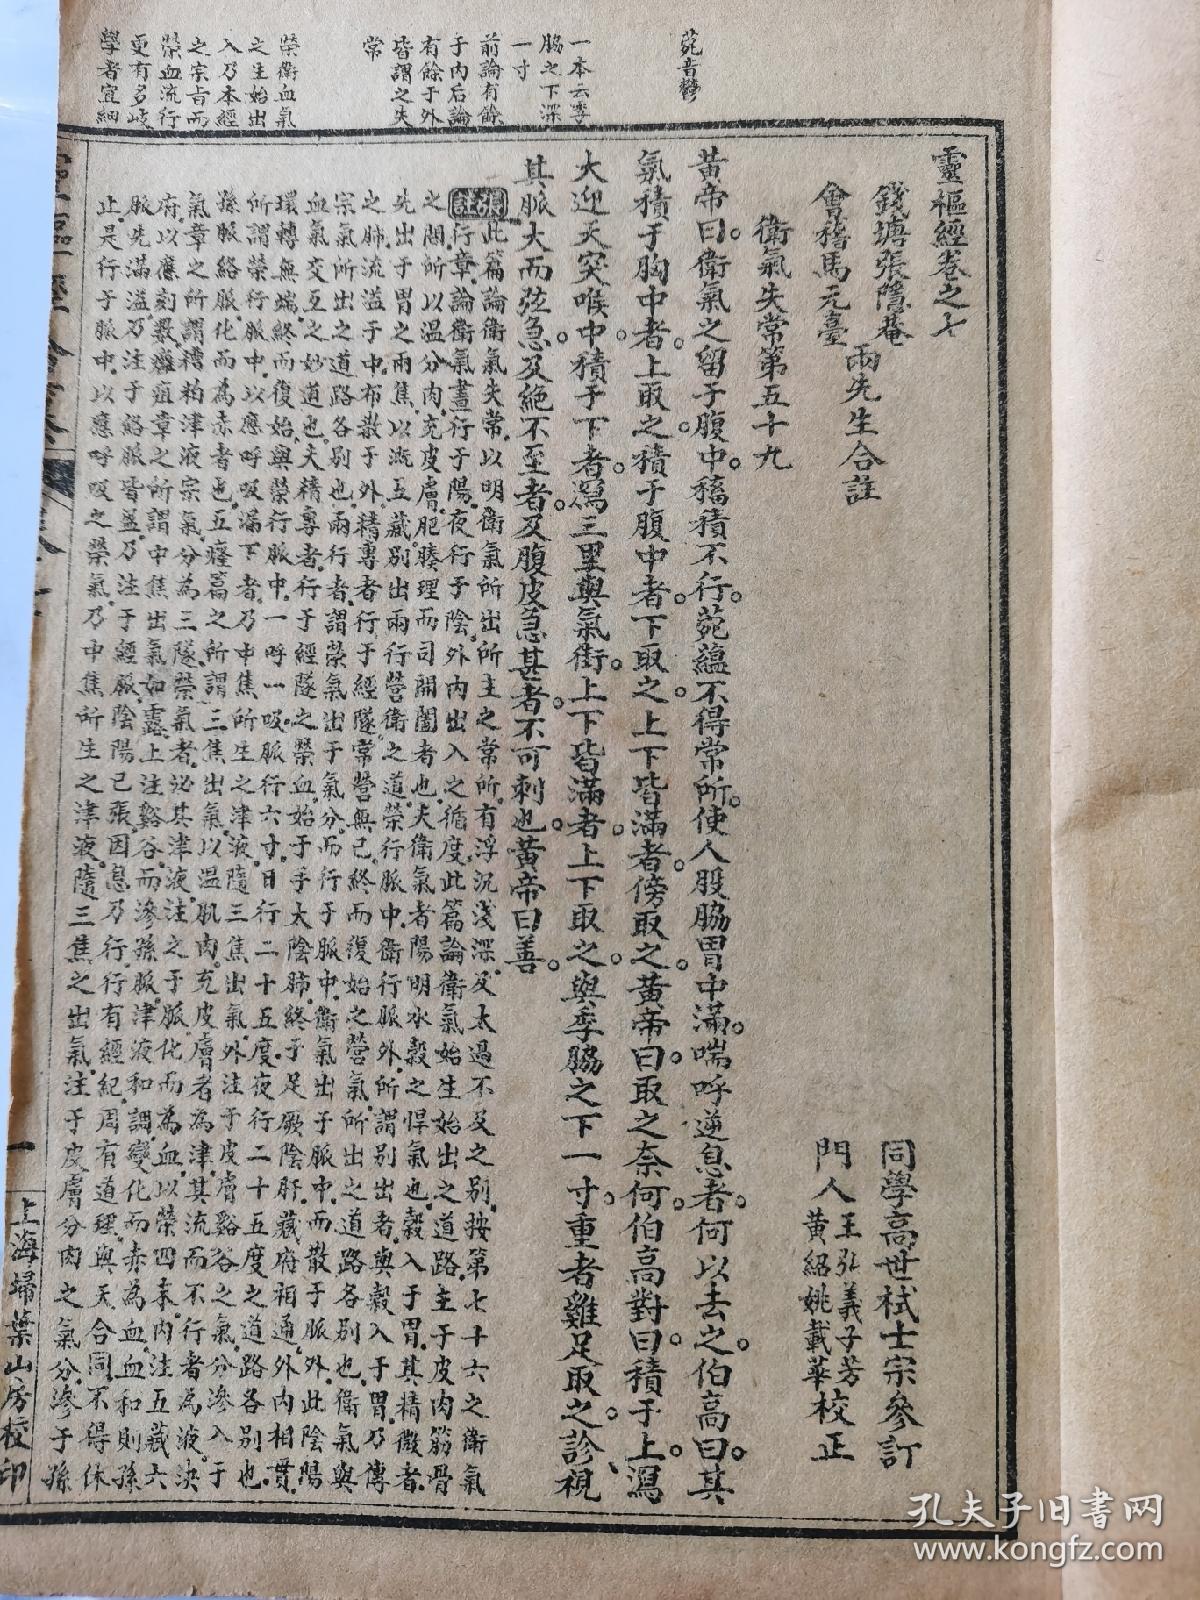 菀音鬱
一本云季
脇之下深
一寸
前論有餘
于內后論
有餘于外
皆謂之失
常
榮衛血氣
之生始出
入乃本經
之宗旨而
榮血流行
更有多岐
學者宜細
靈樞經卷之七
錢塘張隱菴
會稽馬元臺
兩先生合註
同學高世栻士宗參訂
門人王弘義子芳
黃紹姚載華校正
衛氣失常第五十九
黃帝曰衛氣之留于腹中稸積不行菀蘊不得常所使人股脇胃中滿喘呼逆息者何以去之伯高曰其
氣積于胸中者上取之積于腹中者下取之上下皆滿者傍取之黃帝曰取之奈何伯高對曰積于上瀉
大迎天突喉中積于下者瀉三里與氣街上下皆滿者上下取之與季脇之下一寸重者雞足取之診視
其脈大而弦急及絕不至者及腹皮急甚者不可刺也黃帝曰善
張註此篇論衛氣失常以明衛氣所出所主之常所有浮沉淺深及太過不及之別按第七十六之衛氣
行章論衛氣晝行于陽夜行于陰外內出入之循度此篇論衛氣始生始出之道路主于皮肉筋骨
之間所以溫分肉充皮膚肥腠理而司開闔者也夫衛氣者陽明水穀之悍氣也穀入于胃其精微者
先出于胃之兩焦以溉五藏別出兩行營衛之道榮行脈中衛行脈外所謂別出者與穀入于胃乃傳
之肺流溢于中布散于外精專者行于經隧常營無已終而復始之營氣所出之道路各別也衛氣與
宗氣所出之道路各別也兩行者謂榮氣出于氣分而行于脈中衛氣出于脈中而散于脈外此陰陽
血氣交互之妙道也夫精專者行于經隧之榮血始于手太陰肺終于足厥陰肝藏府相通外內相貫
環轉無端終而復始與榮行脈中一呼一吸脈行六寸日行二十五度夜行二十五度之道路各別也
所謂榮行脈中以應呼吸漏下者乃中焦所生之津液隨三焦出氣外注于皮膚谿谷之氣分滲入于
孫脈絡脈化而為赤者也五癃篇之所謂三焦出氣以溫肌肉充皮膚者為津其流而不行者為液決
氣章之所謂糟粕津液宗氣分為三隧榮氣者泌其津液注之于脈化而為血以榮四末內注五藏六
府以應刻數癰疽章之所謂中焦出氣如露上注谿谷而滲孫脈津液和調變化而赤為血血和則孫
脈先滿溢乃注于絡脈皆盈乃注于經脈陰陽已張因息乃行行有經紀周有道理與天合同不得休
止是行于脈中以應呼吸之榮氣乃中焦所生之津液隨三焦之出氣注于皮膚分肉之氣分滲于孫
一
上海埽葉山房校印
孔夫子旧书网
www.kongfz.com